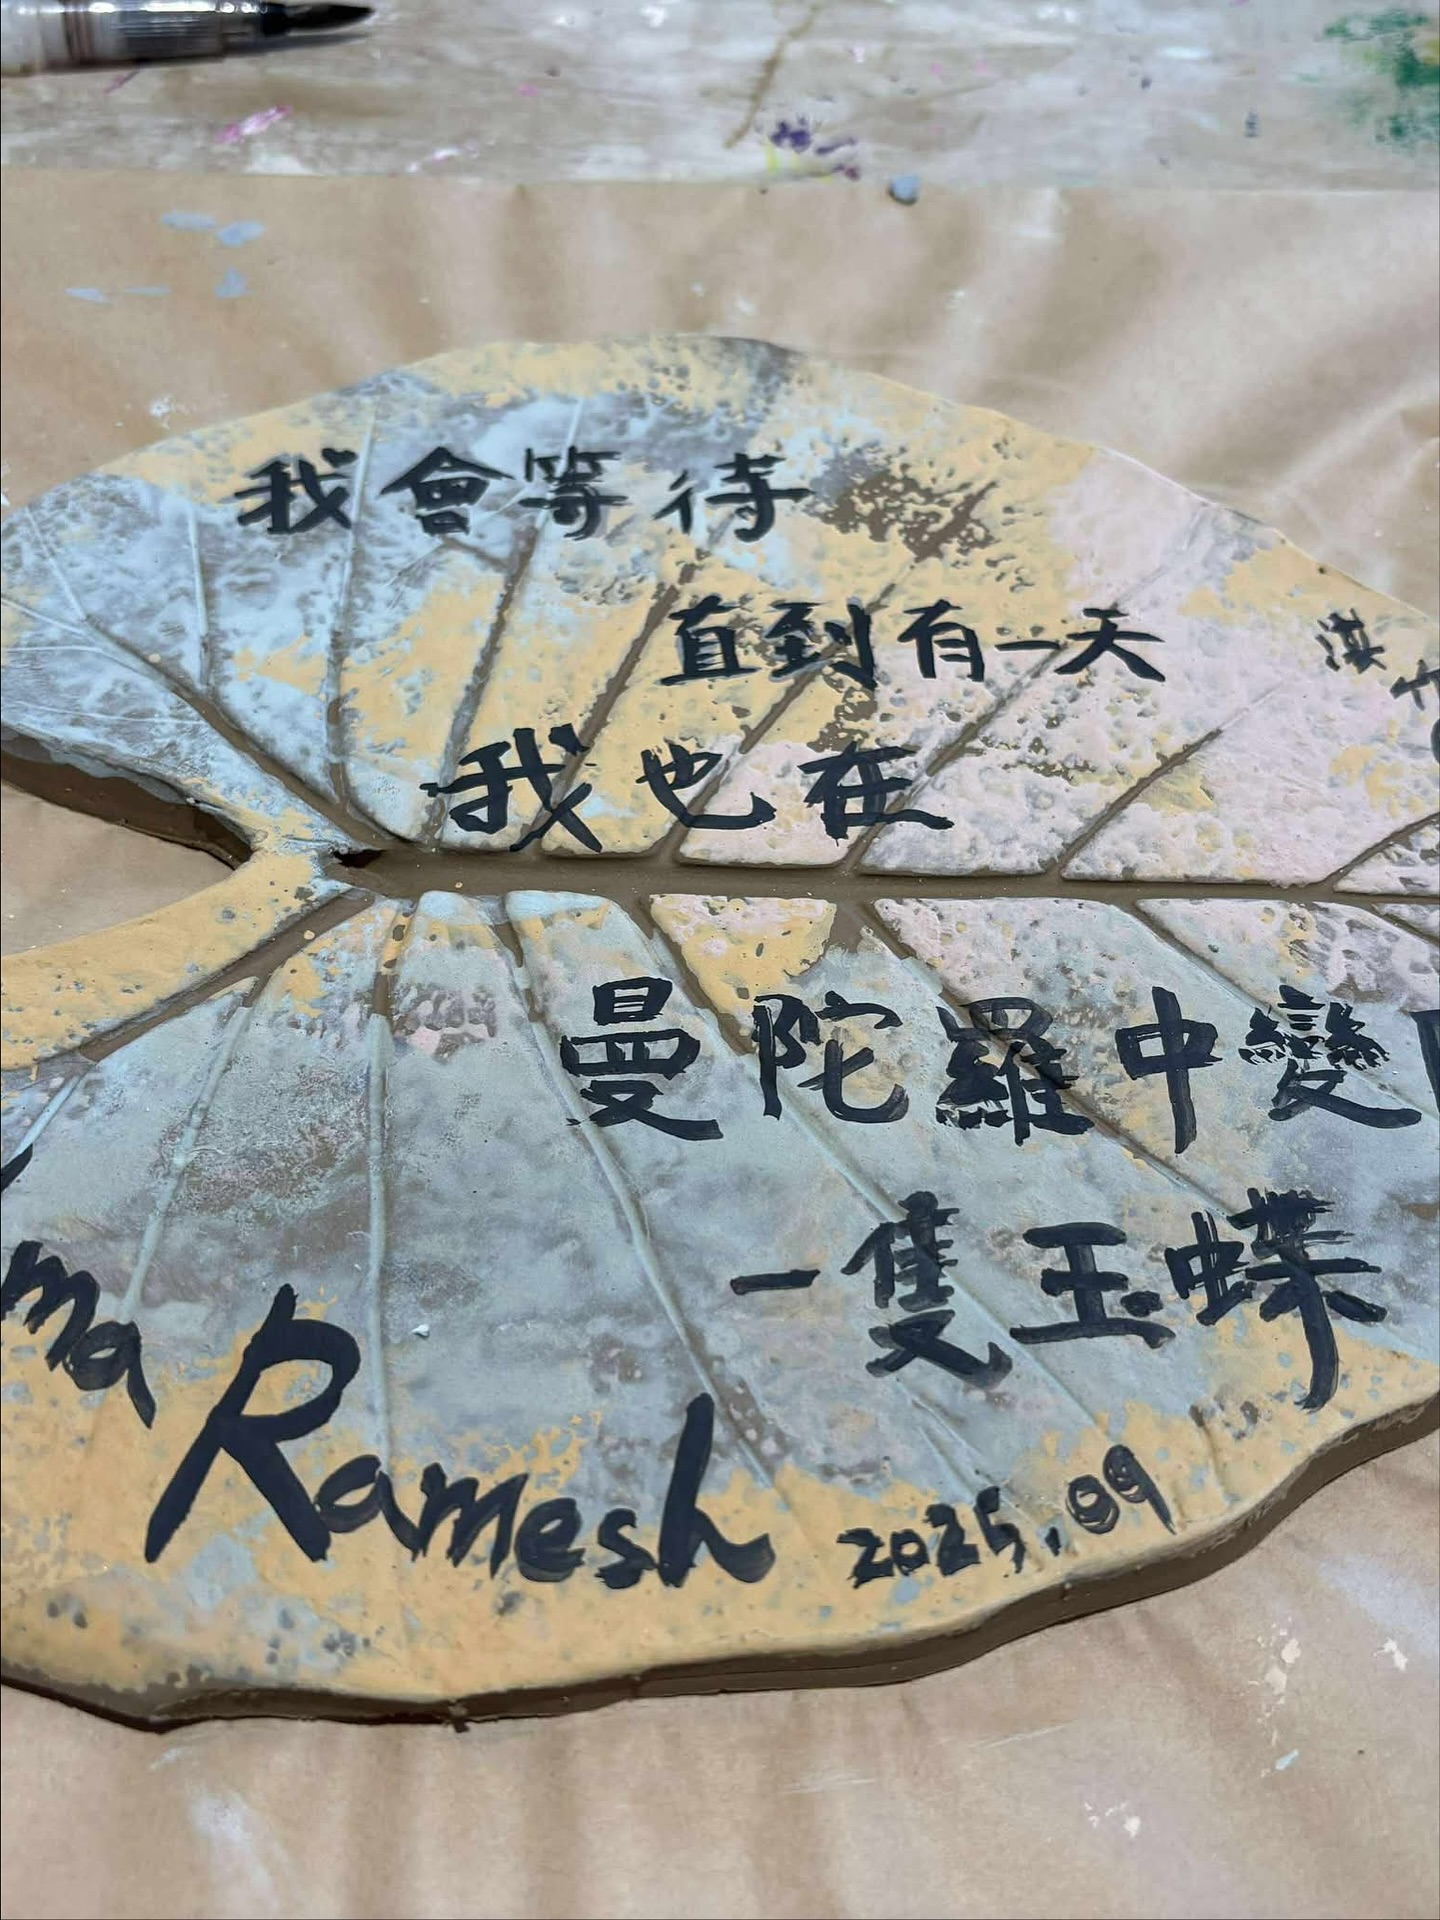 我會等待
直到有一天
我也在
曼陀羅中變
一隻玉蝶
ma
Ramesh
2025.09